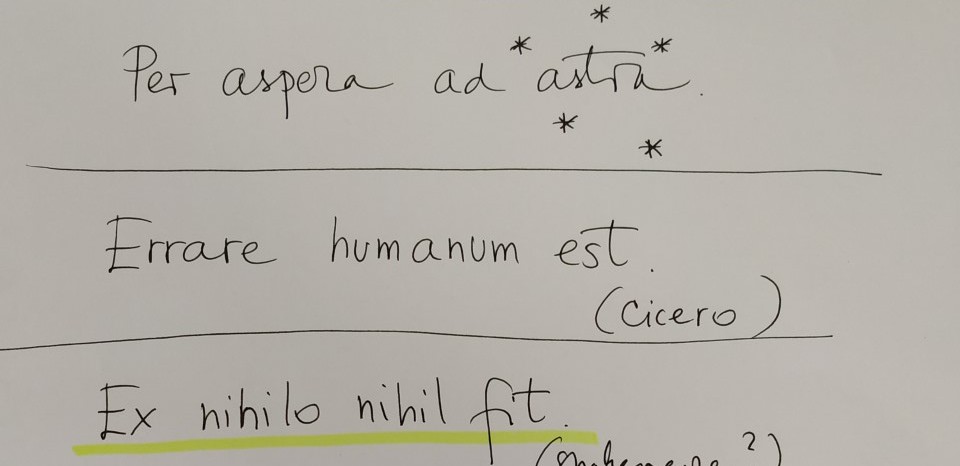 Per aspera ad *astra*.
Errare humanum est.
(Cicero)
Ex nihilo nihil fit.